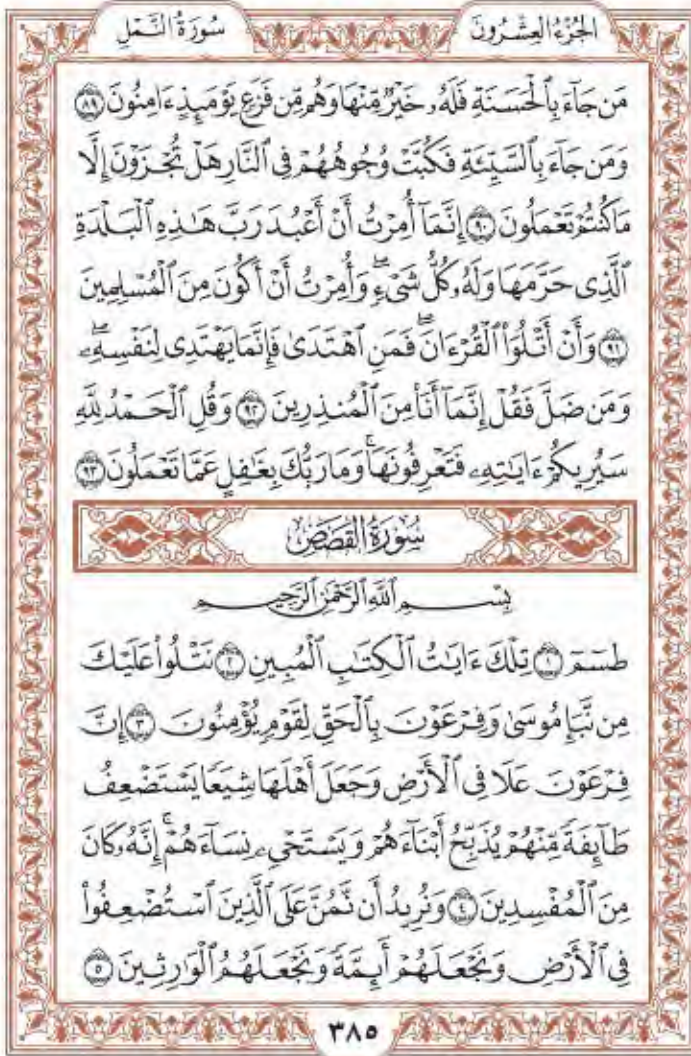 سُورَةُ النَّمْلِ الجُزْءُ العِشْرُونَ
مَن جَآءَ بِٱلْحَسَنَةِ فَلَهُۥ خَيْرٌ مِّنْهَا وَهُم مِّن فَزَعٍ يَوْمَئِذٍ ءَامِنُونَ ٨٩
وَمَن جَآءَ بِٱلسَّيِّئَةِ فَكُبَّتْ وُجُوهُهُمْ فِى ٱلنَّارِ هَلْ تُجْزَوْنَ إِلَّا
مَا كُنتُمْ تَعْمَلُونَ ٩٠ إِنَّمَآ أُمِرْتُ أَنْ أَعْبُدَ رَبَّ هَٰذِهِ ٱلْبَلْدَةِ
ٱلَّذِى حَرَّمَهَا وَلَهُۥ كُلُّ شَىْءٍۖ وَأُمِرْتُ أَنْ أَكُونَ مِنَ ٱلْمُسْلِمِينَ
٩١ وَأَنْ أَتْلُوَا۟ ٱلْقُرْءَانَۖ فَمَنِ ٱهْتَدَىٰ فَإِنَّمَا يَهْتَدِى لِنَفْسِهِۦۖ
وَمَن ضَلَّ فَقُلْ إِنَّمَآ أَنَا۠ مِنَ ٱلْمُنذِرِينَ ٩٢ وَقُلِ ٱلْحَمْدُ لِلَّهِ
سَيُرِيكُمْ ءَايَٰتِهِۦ فَتَعْرِفُونَهَاۚ وَمَا رَبُّكَ بِغَٰفِلٍ عَمَّا تَعْمَلُونَ ٩٣
سُورَةُ القَصَصِ
بِسْمِ ٱللَّهِ ٱلرَّحْمَٰنِ ٱلرَّحِيمِ
طسٓمٓ ١ تِلْكَ ءَايَٰتُ ٱلْكِتَٰبِ ٱلْمُبِينِ ٢ نَتْلُوا۟ عَلَيْكَ
مِن نَّبَإِ مُوسَىٰ وَفِرْعَوْنَ بِٱلْحَقِّ لِقَوْمٍ يُؤْمِنُونَ ٣ إِنَّ
فِرْعَوْنَ عَلَا فِى ٱلْأَرْضِ وَجَعَلَ أَهْلَهَا شِيَعًا يَسْتَضْعِفُ
طَآئِفَةً مِّنْهُمْ يُذَبِّحُ أَبْنَآءَهُمْ وَيَسْتَحْىِۦ نِسَآءَهُمْۚ إِنَّهُۥ كَانَ
مِنَ ٱلْمُفْسِدِينَ ٤ وَنُرِيدُ أَن نَّمُنَّ عَلَى ٱلَّذِينَ ٱسْتُضْعِفُوا۟
فِى ٱلْأَرْضِ وَنَجْعَلَهُمْ أَئِمَّةً وَنَجْعَلَهُمُ ٱلْوَٰرِثِينَ ٥
٣٨٥